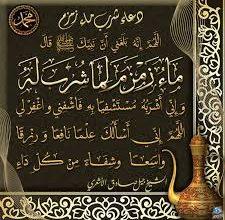 محمد
دعاء شرب ماء زمزم
اللهم إنه بلغني أن نبيك ﷺ قال
ماء زمزم لما شرب له
وإني أشربه مستشفيا به فاشفني واغفر لي
اللهم إني أسألك علما نافعا ورزقا
واسعا وشفاء من كل داء